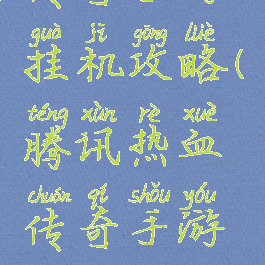 guà jī gōng lüè
挂机攻略(
téng xùn rè xuè
腾讯热血
chuán qí shǒu yóu
传奇手游